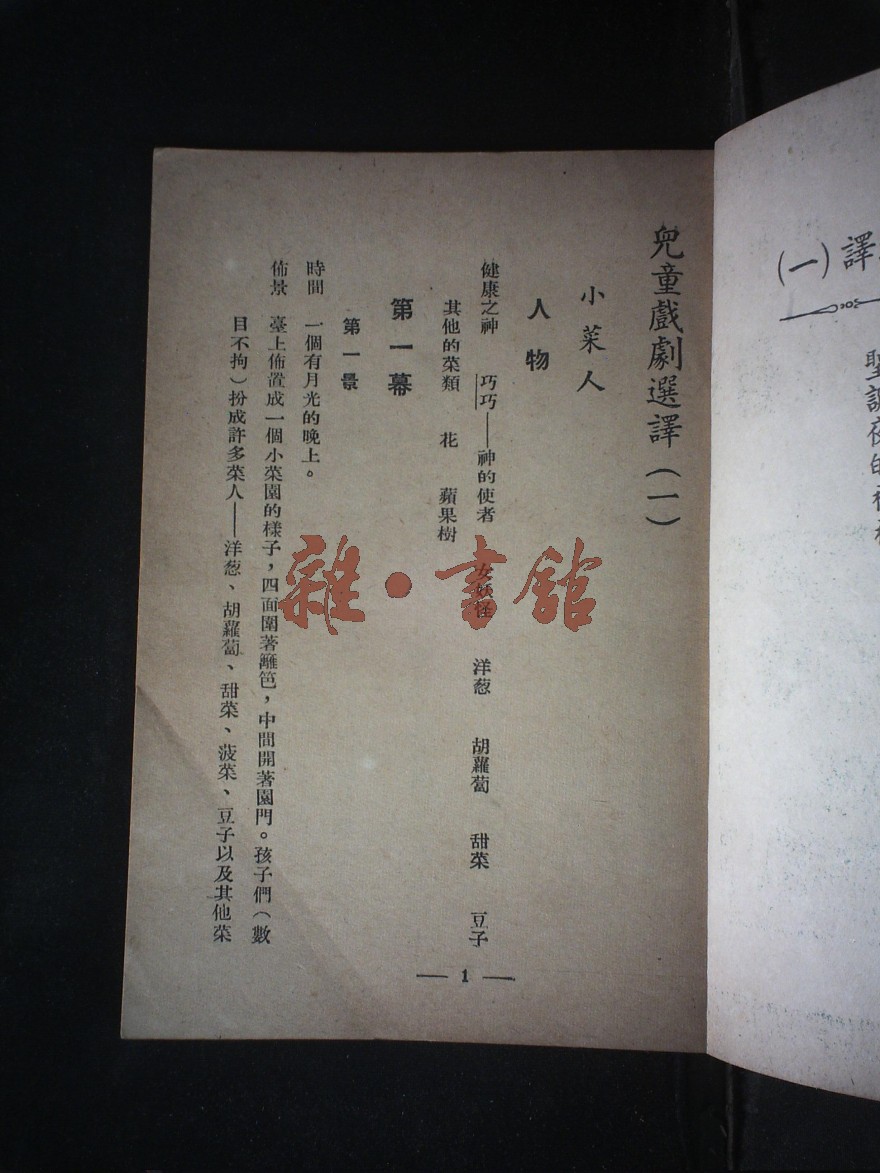 兒童戲劇選譯（一）
小菜人
人物
健康之神　巧巧——神的使者　女妖怪　洋葱　胡蘿蔔　甜菜　豆子
其他的菜類　花　蘋果樹
第一幕
第一景
時間　一個有月光的晚上。
佈景　臺上佈置成一個小菜園的樣子，四面圍著籬笆，中間開著園門。孩子們（數
目不拘）扮成許多菜人——洋葱、胡蘿蔔、甜菜、菠菜、豆子以及其他菜
— 1 —
雜·書舘
（一）譯
聖誕夜的